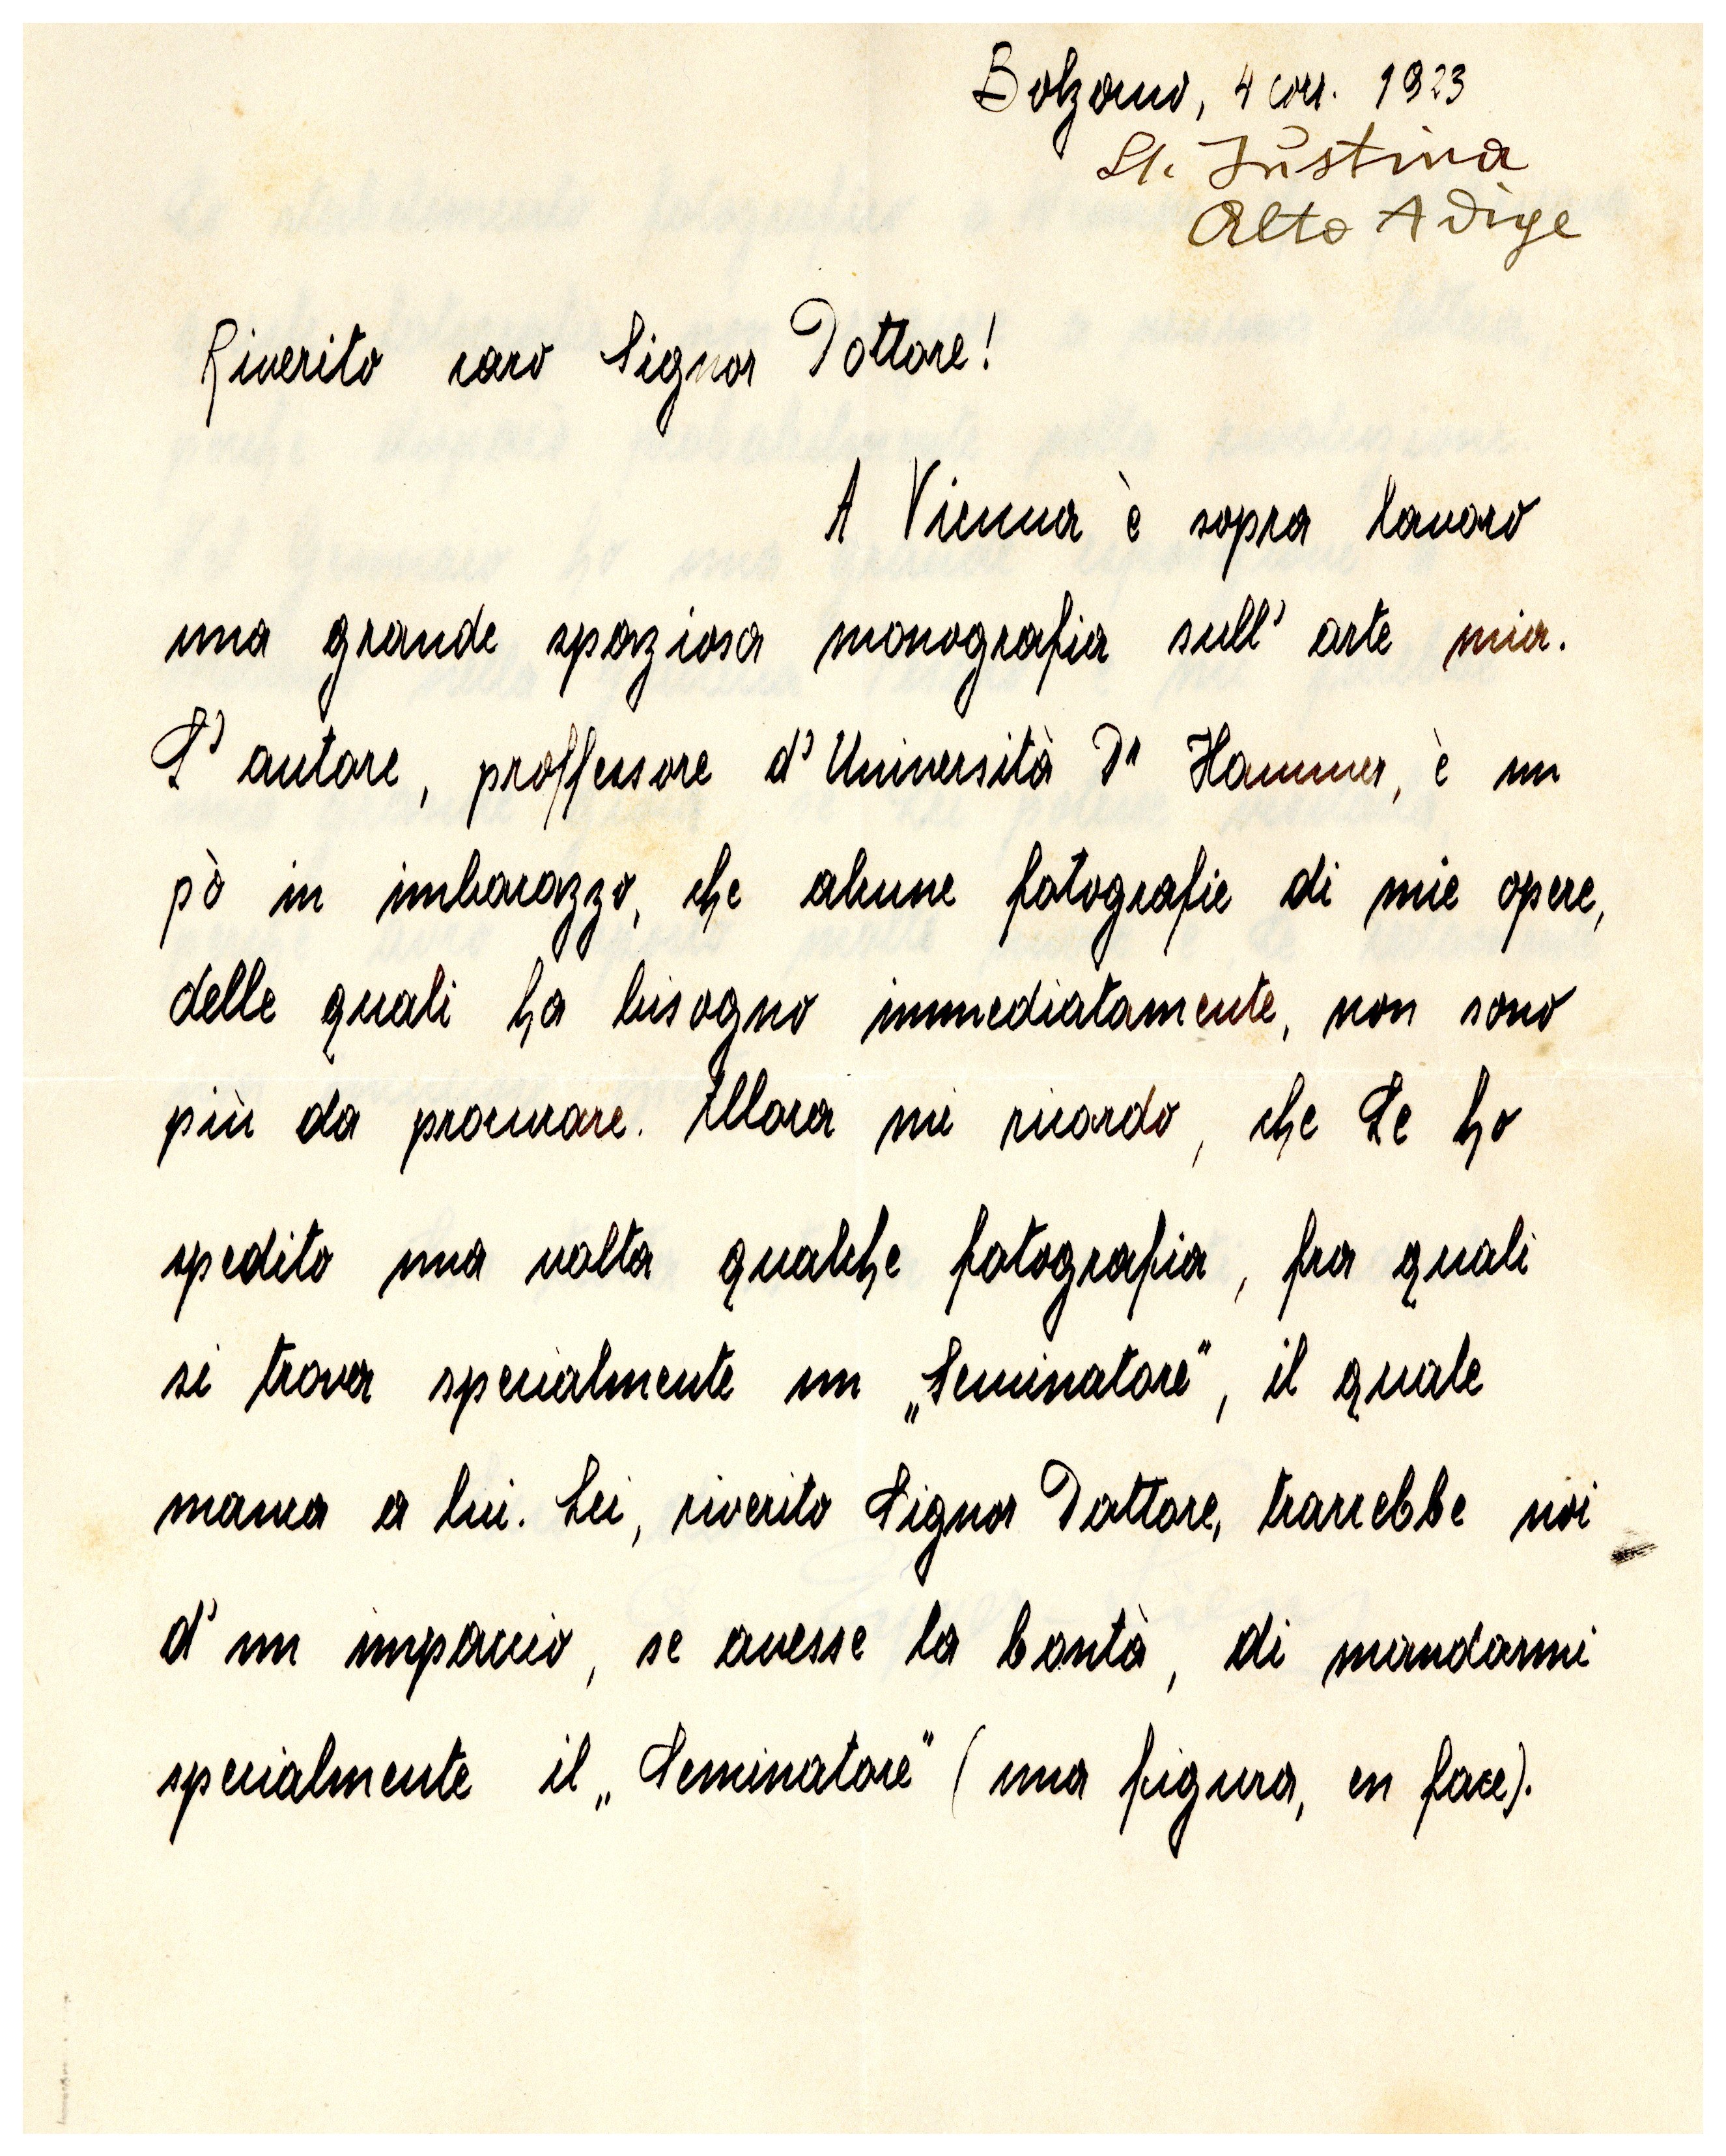 Bolzano, 4 corr. 1923
St. Justina
Alto Adige
Riverito caro Signor Dottore!
A Vienna è sopra lavoro
una grande spaziosa monografia sull' arte mia.
L' autore, proffessore d' Università Dr Hammer, è un
pò in imbarazzo, che alcune fotografie di mie opere,
delle quali ha bisogno immediatamente, non sono
più da procurare. Allora mi ricordo, che Le ho
spedito una volta qualche fotografia, fra quali
si trova specialmente un „Seminatore“, il quale
manca a lui. Lei, riverito Signor Dottore, trarrebbe noi
d' un impaccio, se avesse la bontà, di mandarmi
specialmente il „Seminatore“ (una figura, en face).